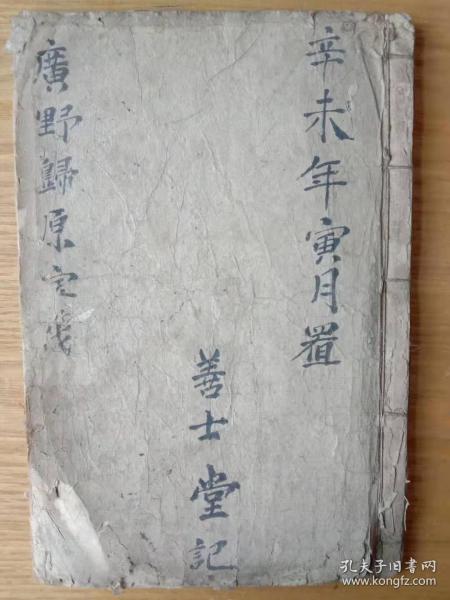 辛未年寅月置
善士堂記
廣野歸原宝
孔夫子旧书网
www.kongfz.com